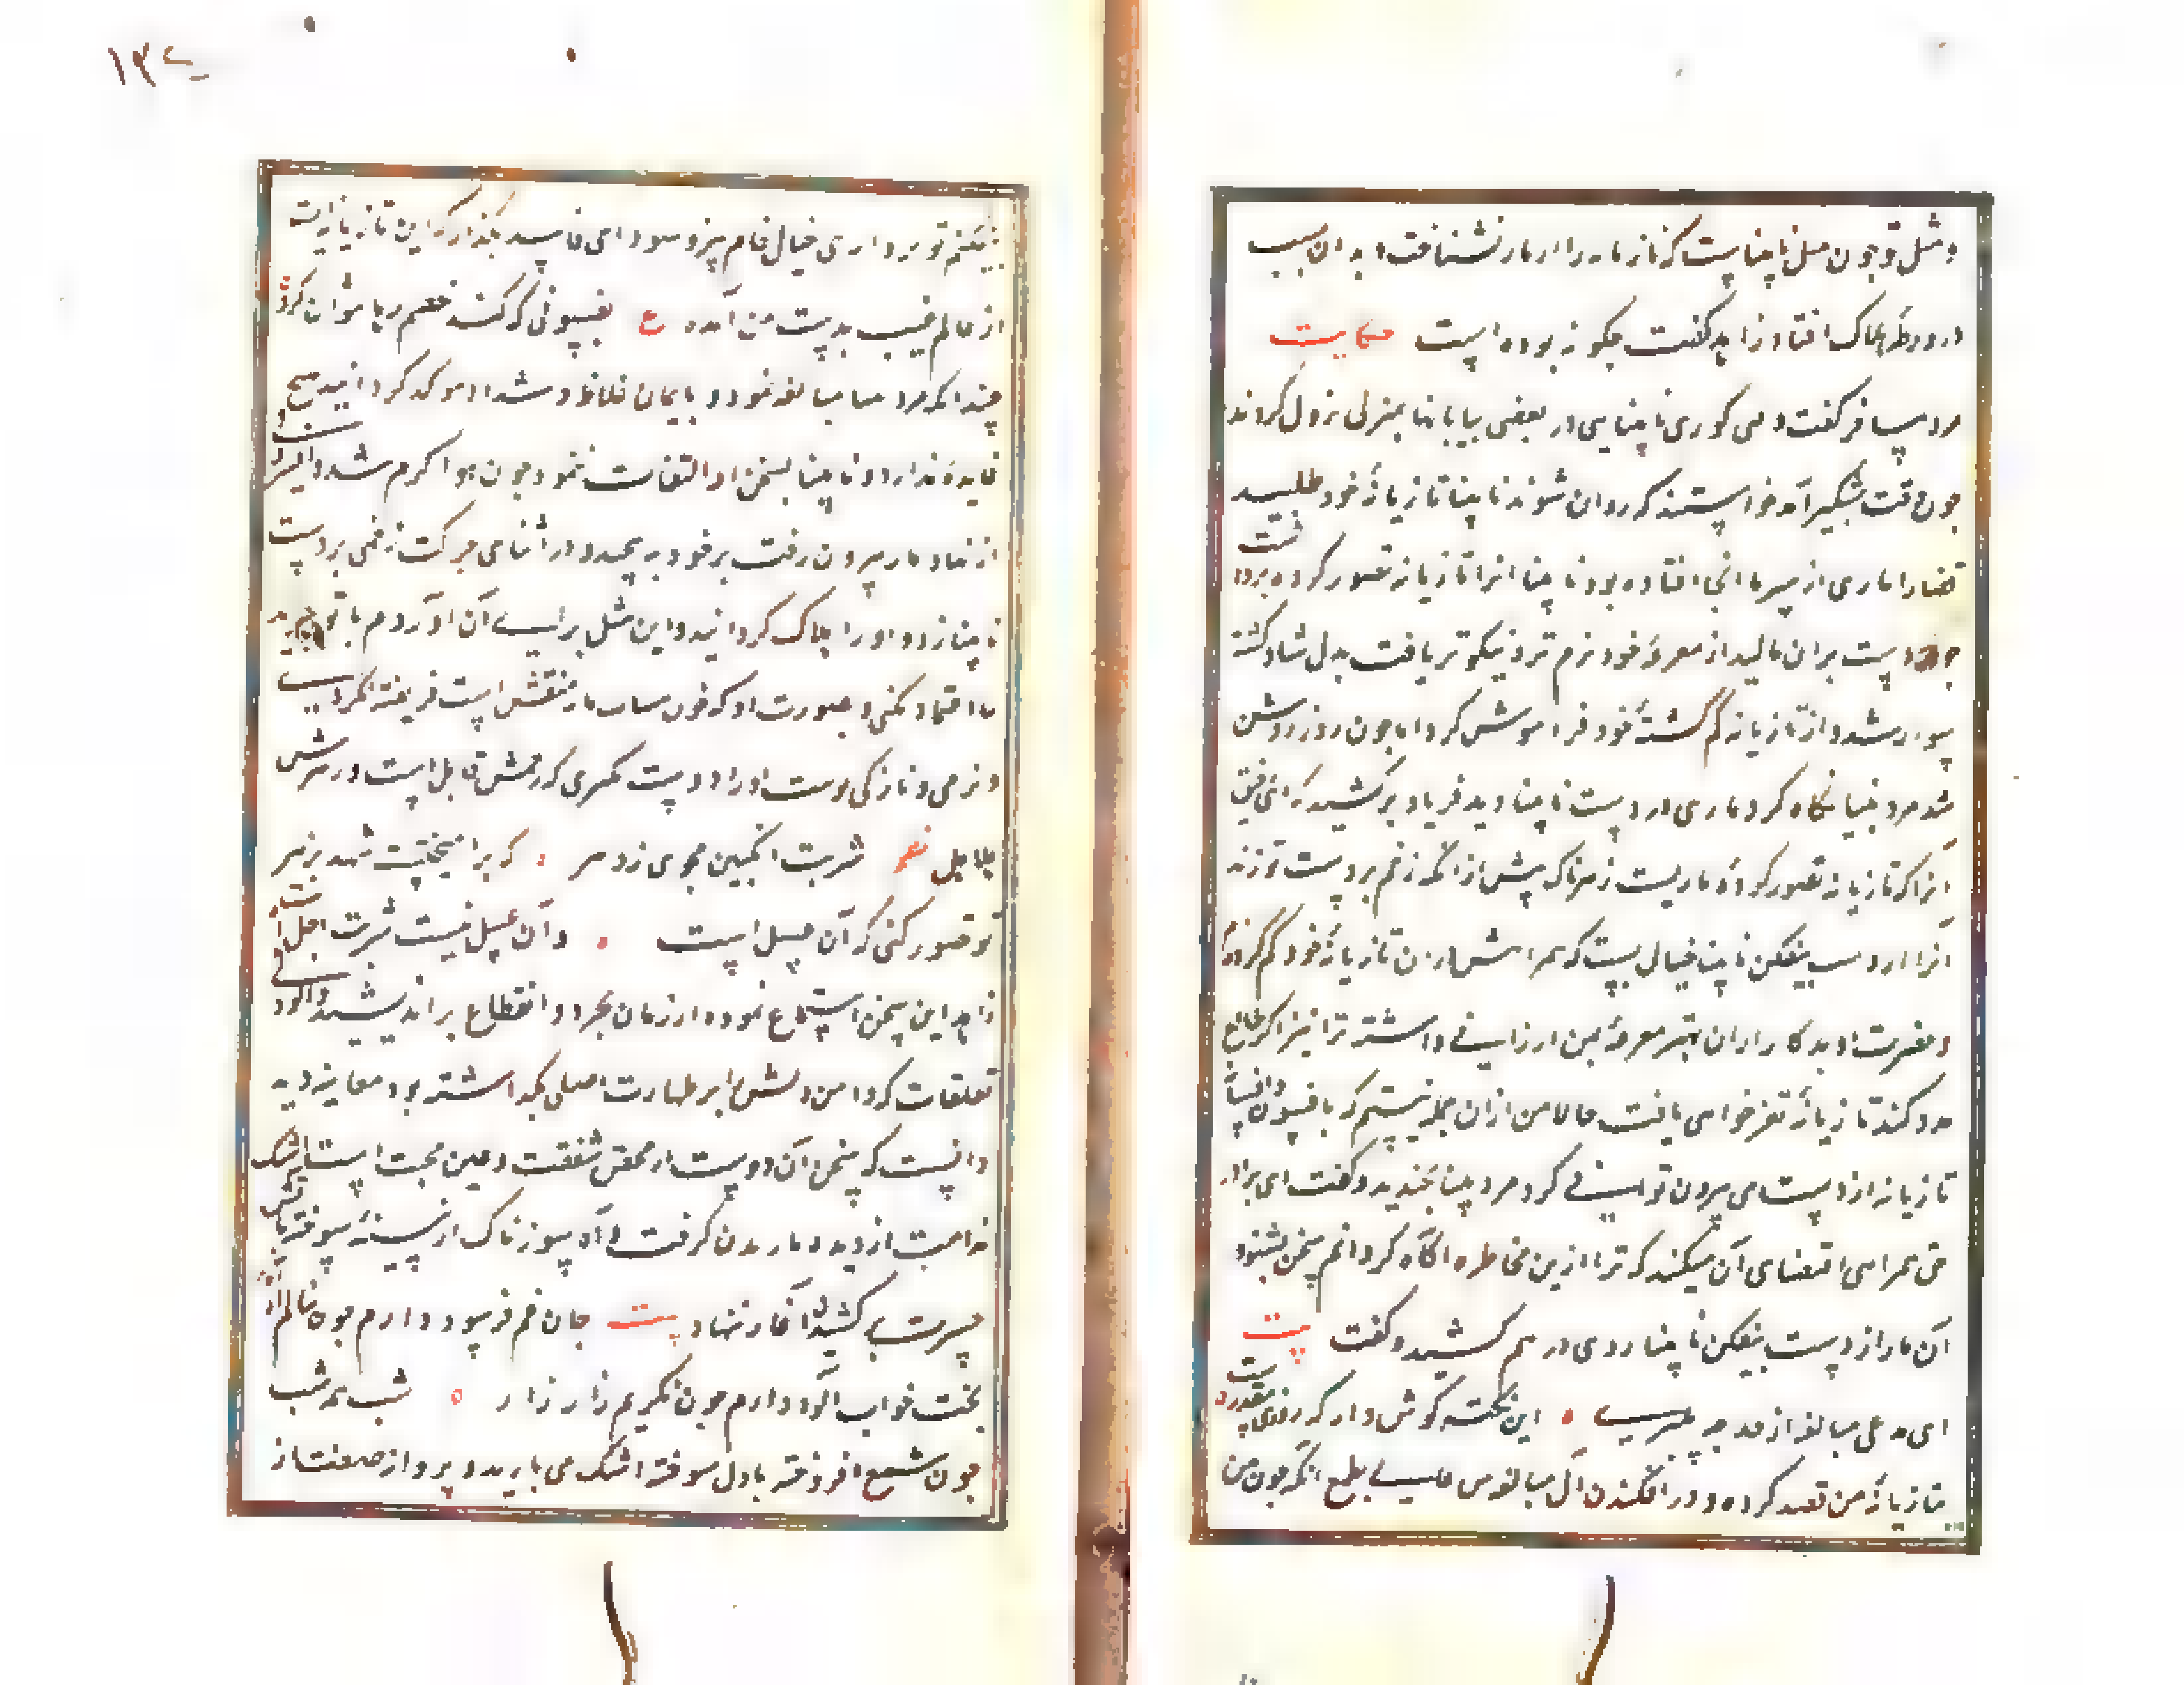 و مثل تو چون مثل نابیناست که تازیانه را از مار نشناخت و بدان سبب
در ورطه هلاک افتاد زاهد گفت چگونه بوده است حکایت
مرد مسافر گفت وقتی کوری و بینایی در بعضی بیابانها بمنزلی نزول کردند
چون وقت شبگیر آمد خواستند که روان شوند نابینا تازیانه خود طلبید
قضا را ماری از سرما آنجا افتاده بود نابینا آنرا تازیانه تصور کرده برداشت
چون دست بران مالید از مقرعه خود نرم تر و نیکوتر یافت بدل شاد گشته
سوار شد و از تازیانه گم گشته خود فراموش کرد اما چون روز روشن
شد مرد بینا نگاه کرد ماری در دست نابینا دید فریاد برکشید که ای رفیق
آنرا که تازیانه تصور کرده ماریست زهرناک پیش از آنکه زخم بر دست تو زند
آنرا از دست بیفکن نابینا خیال بست که همراهش در آن تازیانه خود گم کرده
و حضرت او بدکارداران بهتر مقرعه بمن ارزانی داشته ترا نیز اگر طالع
مدد کند تازیانه نغز خواهی یافت حالا من ازان جمله نیستم که بافسون و افسانه
تازیانه از دست من بیرون توانی کرد مرد بینا بخندید و گفت ای برادر
حق همراهی اقتضای آن میکند که ترا ازین مخاطره آگاه گردانم سخن بشنو
آن مار از دست بیفکن نابینا روی درهم کشید و گفت بیت
ای مدعی مبالغه از حد چه میبری این نکته گوش دار که روزی مقدرست
تازیانه من قصد کرده و در افکندن آن مبالغه می نمایی بطمع آنکه چون من
بیفکنم تو برداری خیال خام مپز و سودای فاسد بگذار که این تازیانه ایست
از عالم غیب بدست من آمده ع بفسونی که کند خصم رها نتوان کرد
چندانکه مرد بینا مبالغه نمود و بایمان غلاظ و شداد موکد گردانید هیچ
فایده نداد و نابینا بسخن او التفات ننمود چون هوا گرم شد و افسردگی
از نهاد مار بیرون رفت بر خود بپیچید و در اثنای حرکت زخمی بر دست
نابینا زد و او را هلاک گردانید و این مثل برای آن آوردم تا تو نیز
اعتماد نکنی و بصورت او که چون نقش مار منقش است فریفته نگردی
و نرمی و نازکی پوست او را دوست نگیری که زخمش قاتل است و زهرش
هلاهل شعر شربت انگبین مجوی ز دهر که برآمیختست شهد بزهر
تو تصور کنی که آن عسل است و آن عسل نیست شربت اجل است
زاهد این سخن استماع نموده از زمان تجرد و انقطاع براندیشید و آلودگی
تعلقات که دامن دلش را بر طهارت اصلی نگذاشته بود معاینه دید
دانست که سخن آن دوست از محض شفقت و عین محبت است اشک
ندامت از دیده باریدن گرفت و آه سوزناک از سینه سوخته بآتش
حسرت کشیدن آغاز نهاد بیت جان غم فرسوده دارم چون ننالم آه آه
بخت خواب آلوده دارم چون نگریم زار زار شب همه شب
چون شمع افروخته با دل سوخته اشک می بارید و پروانه صفت از